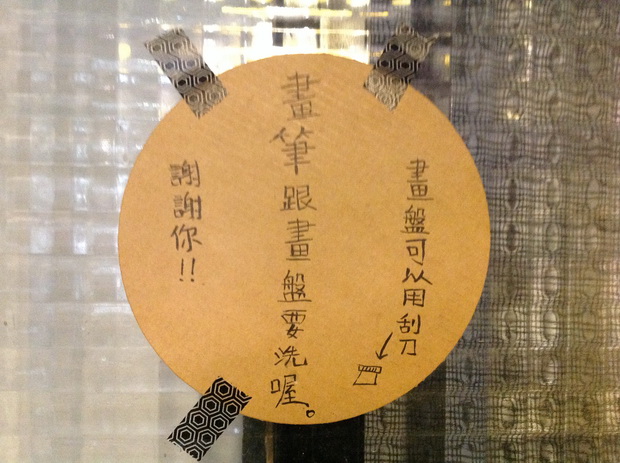 畫盤可以用刮刀
畫筆跟畫盤要洗喔。
謝謝你!!